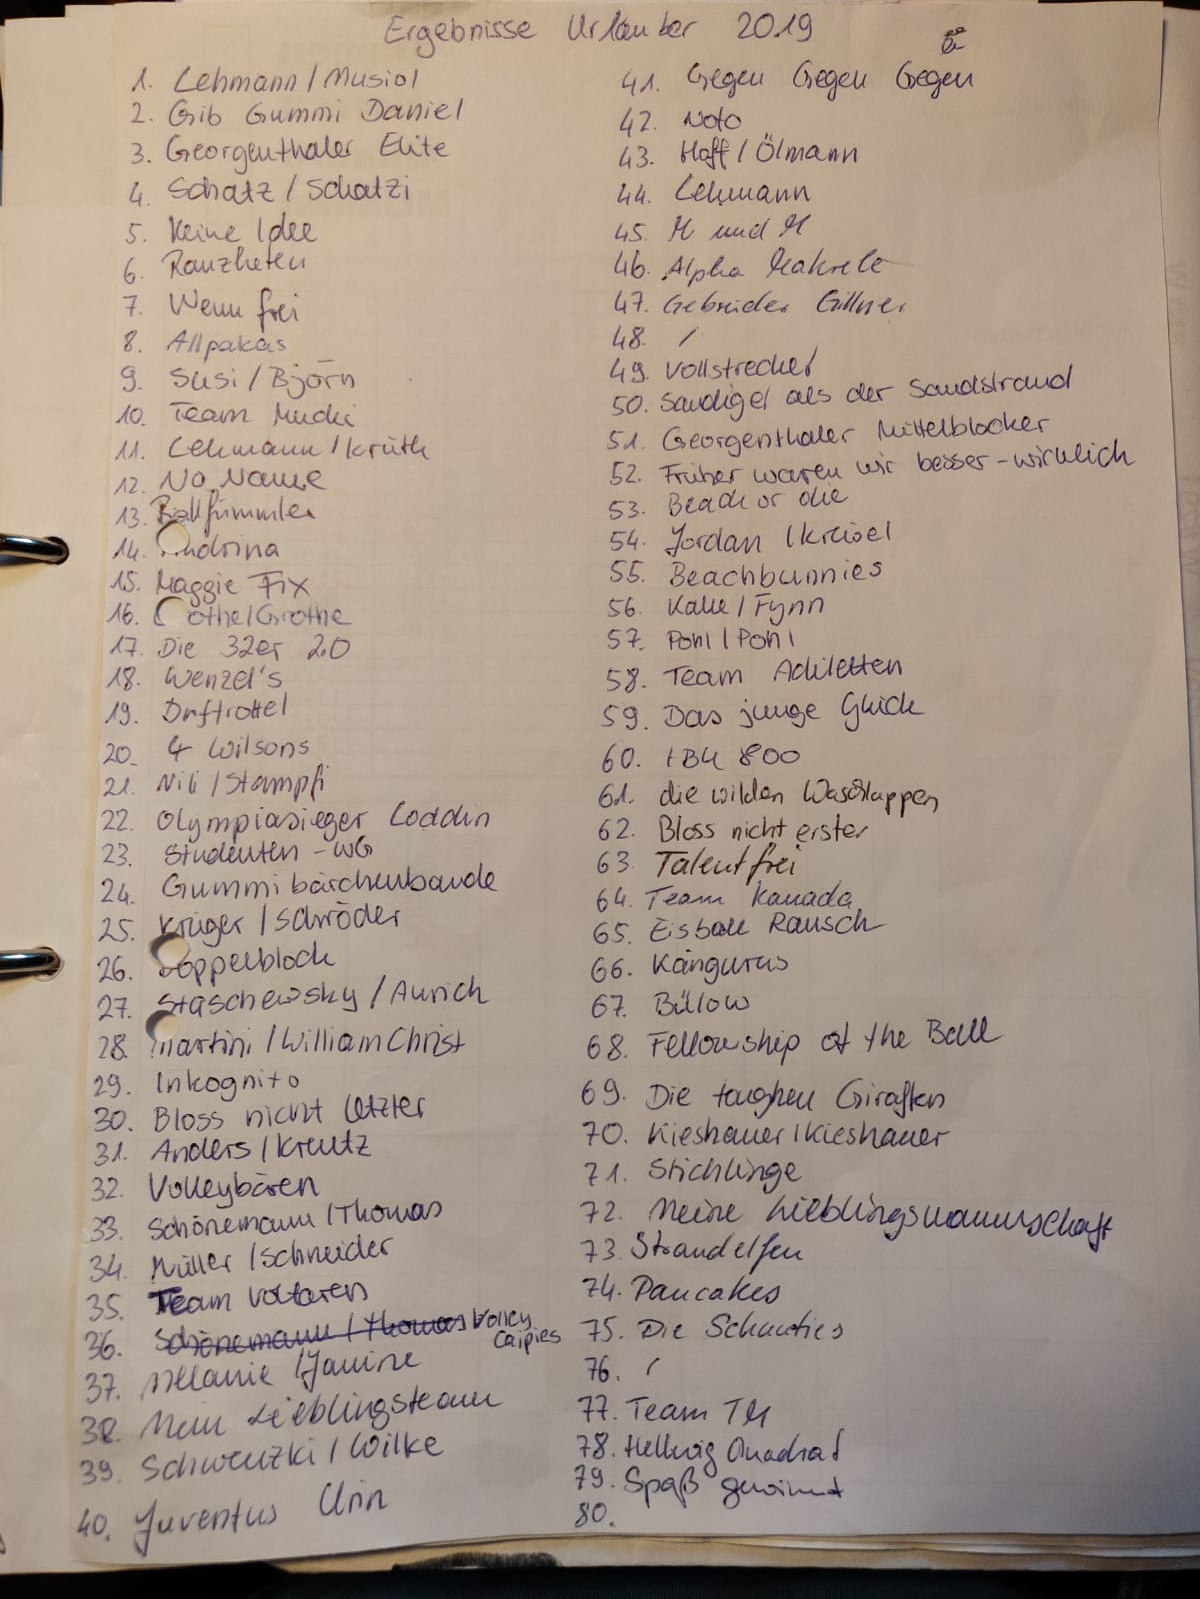 Ergebnisse Urlauber 2019
1. Lehmann / Musiol
2. Gib Gummi Daniel
3. Georgenthaler Elite
4. Schatz / Schatzi
5. Keine Idee
6. Ranzheten
7. Wenn frei
8. Allpakas
9. Susi / Björn
10. Team Mucki
11. Lehmann / Krüth
12. No Name
13. Ballfummler
14. ndrina
15. Maggie Fix
16. othe / Grothe
17. Die 32er 2.0
18. Wenzel's
19. Duftrottel
20. 4 Wilsons
21. Nili / Stampfi
22. Olympiasieger Loddin
23. Studenten - WG
24. Gummibärchenbande
25. Krüger / Schröder
26. oppelblock
27. Staschewsky / Aurich
28. Martini / William Christ
29. Inkognito
30. Bloss nicht letzter
31. Anders / Kreutz
32. Volleybären
33. Schönemann / Thomas
34. Müller / Schneider
35. Team Voltaren
36. Schönemann / Thomas Volley
Caipies
37. Melanie / Janine
38. Mein Lieblingsteam
39. Schwenzki / Wilke
40. Juventus Urin
41. Gegen Gegen Gegen
42. Noto
43. Hoff / Ölmann
44. Lehmann
45. M und M
46. Alpha Makrele
47. Gebrüder Gillner
48. /
49. Vollstrecker
50. Sandiger als der Sandstrand
51. Georgenthaler Mittelblocker
52. Früher waren wir besser - wirklich
53. Beach or die
54. Jordan / Kreisel
55. Beachbunnies
56. Kalle / Fynn
57. Pohl / Pohl
58. Team Adiletten
59. Das junge Glück
60. IBU 800
61. die wilden Waschlappen
62. Bloss nicht erster
63. Talentfrei
64. Team Kanada
65. Eisball Rausch
66. Kängurus
67. Bülow
68. Fellowship of the Ball
69. Die toughen Giraffen
70. Kieshauer / Kieshauer
71. Stichlinge
72. Meine Lieblingsmannschaft
73. Strandelfen
74. Pancakes
75. Die Schanties
76. /
77. Team TM
78. Hellwig Quadrat
79. Spaß gewinnt
80.